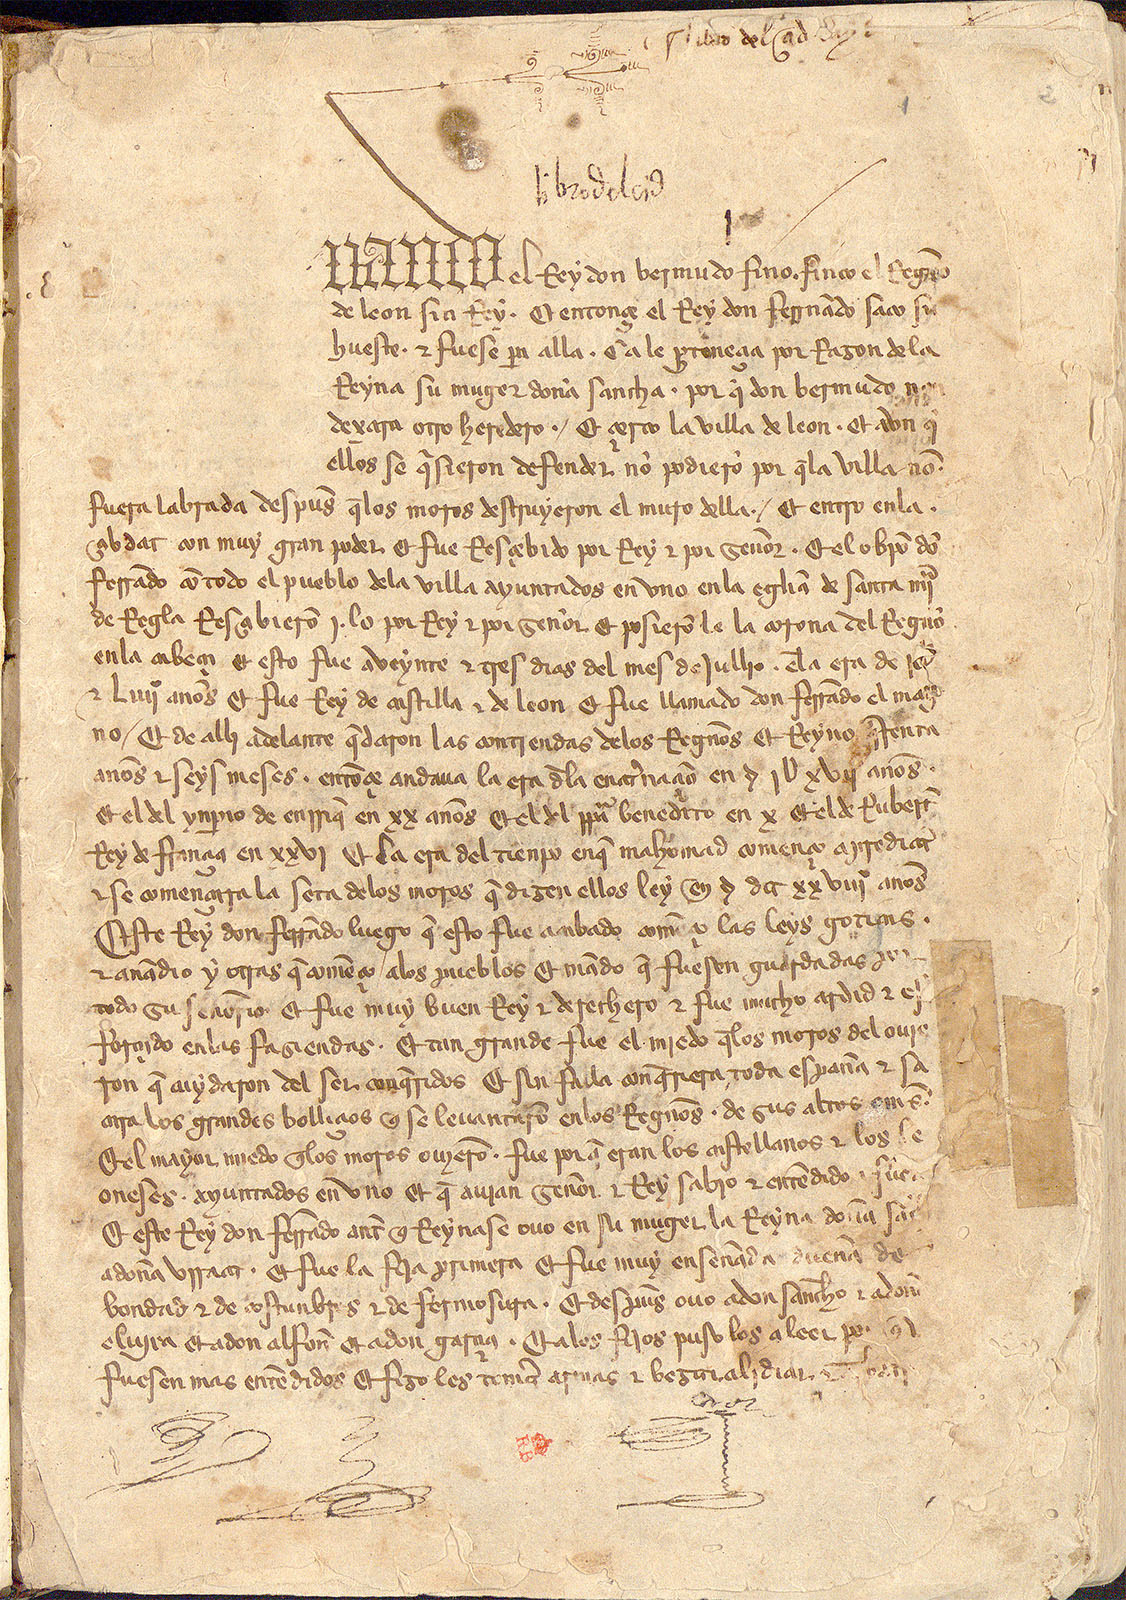 libro del Cid Ruy
libro del cid
uando el Rey don bermudo fino. finco el Regno
de leon sin Rey. Et entonçe el Rey don ferrnado saco su
hueste. et fuese pa alla. Ca le pertenesçia por Razon de la
Reyna su muger doña sancha. por q̃ don bermudo non
dexara otro heredero./ Et çerco la villa de leon. et avn q̃
ellos se q̃sieron defender nõ podierõ por q̃ la villa nõ.
fuera labrada despues q̃ los moros destruyeron el muro della./ Et entro en la.
çibdat con muy gran poder et fue Resçebido por Rey et por señor. Et el obpo dõ
ferrãdo cõ todo el pueblo de la villa ayuntados en vno en la eglia de santa mª
de Regla Resçebierõ lo por Rey et por señor et posierõ le la corona del Regno
en la cabeça et esto fue a veynte et tres dias del mes de Julho. en la era de
et Liiijº años et fue Rey de castilla et de leon et fue llamado don ferrãdo el mag
no/ Et de alli adelante q̃daron las contiendas de los Regnos et Reyno
años et seys meses. entõçe andaua la era dela encarnaçiõ en xvij años.
et el del ynperio de enrriq̃ en xx años et el del papa benedito en x et el de Rubert
Rey de françia en xxvj et la era del tienpo en q̃ mahomad començo a predicar
et se començara la seta de los moros q̃ dizen ellos ley en xxviijº años
Este Rey don ferrãdo luego q̃ esto fue acabado comẽço las leys goticas.
et anãdio y otras q̃ comẽço a los pueblos et mãdo q̃ fuesen guardadas por
todo su señorio et fue muy buen Rey et derechero et fue mucho ardid et es
forçado en las faziendas. Et tan grande fue el miedo q̃ los moros del ouie
ron q̃ cuydaron del ser conq̃ridos Et sin falla conq̃riera toda españa et sa
cara los grandes bolliçios q̃ se leuantarõ en los Regnos. de sus altos oms.
Et el mayor miedo q̃ los moros ouyerõ. fue por q̃ eran los castellanos et los le
oneses. ayuntados en vno et q̃ auian señor et Rey sabio et entẽdido
Et este Rey don ferrãdo ante q̃ Reynase ouo en su muger la Reyna doña sãcha
a doña vrraca. Et fue la fija primera et fue muy enseñada dueña de
bondad et de costunbres et de fermosura. Et despues ouo a don sancho et a doña
eluira et a don alfon et a don garçia. Et a los fijos puso los a leer por q̃
fuesen mas entẽdidos et fizo les tomar armas